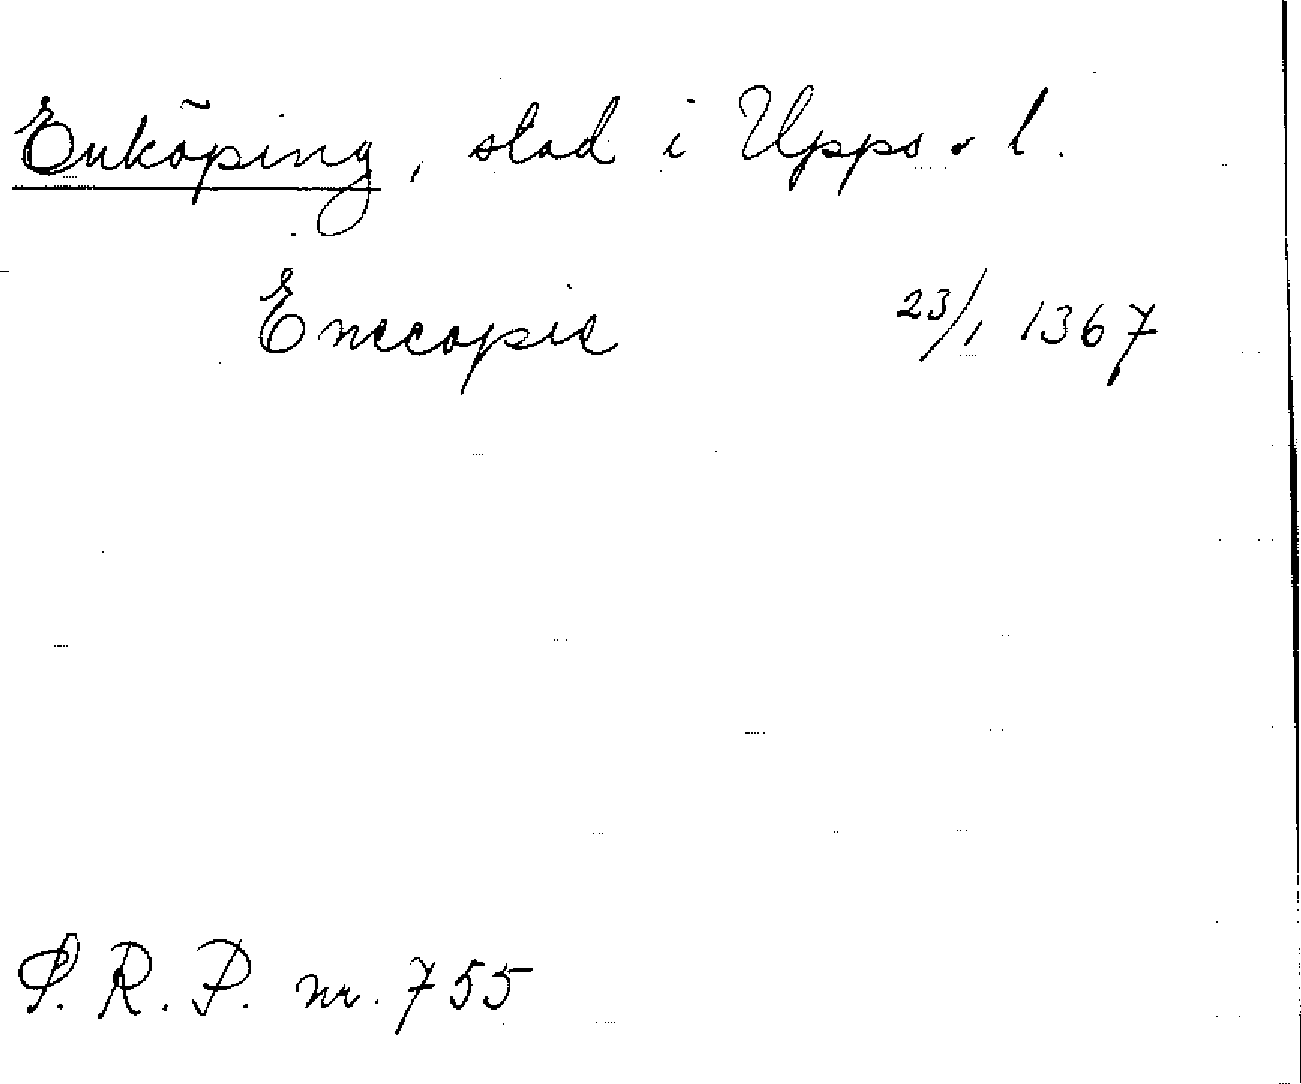 Enköping, stad i Upps. l.
Enecopie 23/1 1367
S. R. P. nr. 755